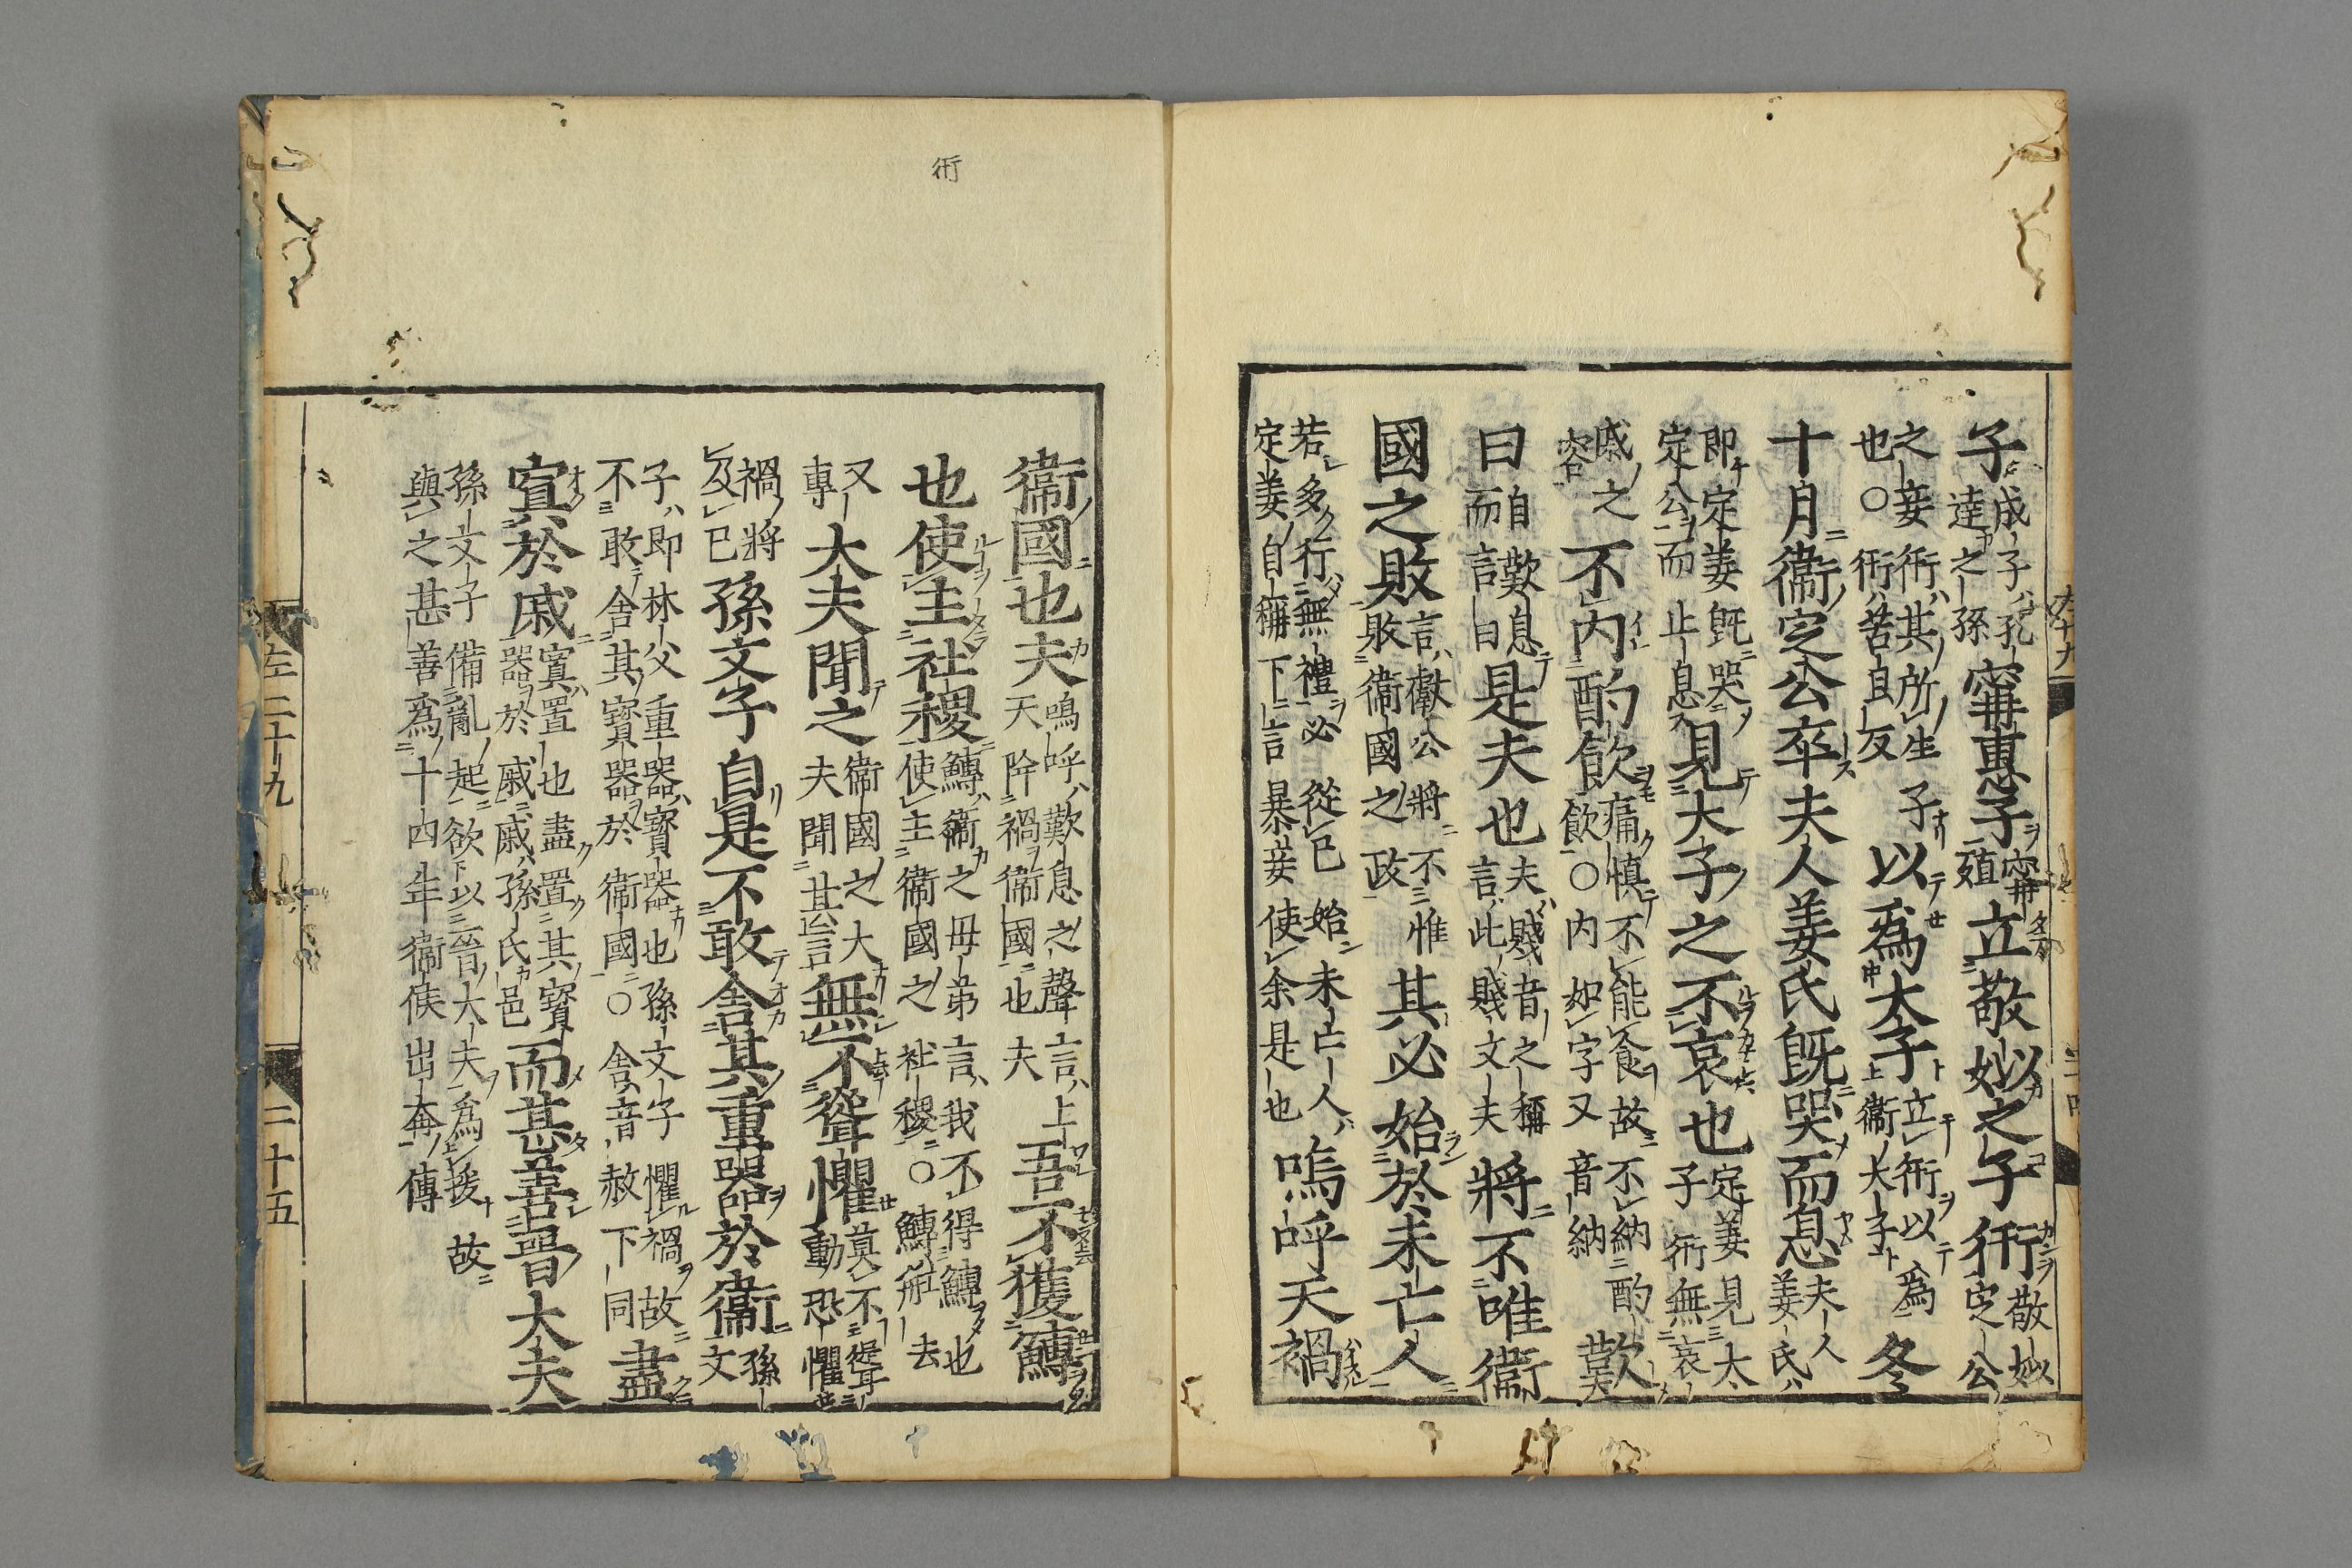 子成子孔達之孫甯惠子甯殖立敬姒之子衎敬姒定公
之妾衎其所生子也○衎苦且反以爲太子立衎以爲衞大子冬
十月衞定公卒夫人姜氏既哭而息夫人姜氏
即定姜既哭定公而止息見大子之不哀也定姜見大子衎無哀
戚之容不内酌飲痛慎不能食故不納酌飲○内如字又音納歎
曰自歎息而言曰是夫也夫賤音之稱言此賤丈夫將不唯衞
國之敗言獻公將不惟敗衞國之政其必始於未亡人
若多行無禮必從已始未亡人定姜自稱下言暴妾使余是也嗚呼天禍
衞國也夫嗚呼歎息之聲言上天降禍衞國也夫吾不獲鱄
也使主社稷鱄衞之毋弟言我不得鱄也使主衞國之社稷○鱄市去
又專大夫聞之衞國之大夫聞其言無不聳懼莫不聳動恐懼
禍將及已孫文子自是不敢舍其重器於衞孫文
子即林父重器寶器也孫文子懼禍故不敢舍其寶器於衞國○舍音赦下同盡
寘於戚寘置也盡置其寶器於戚戚孫氏邑而甚善晉大夫
孫文子備亂起欲以晉大夫爲援故與之甚善爲十四年衞侯出奔傳
衎
左二十九
二十五